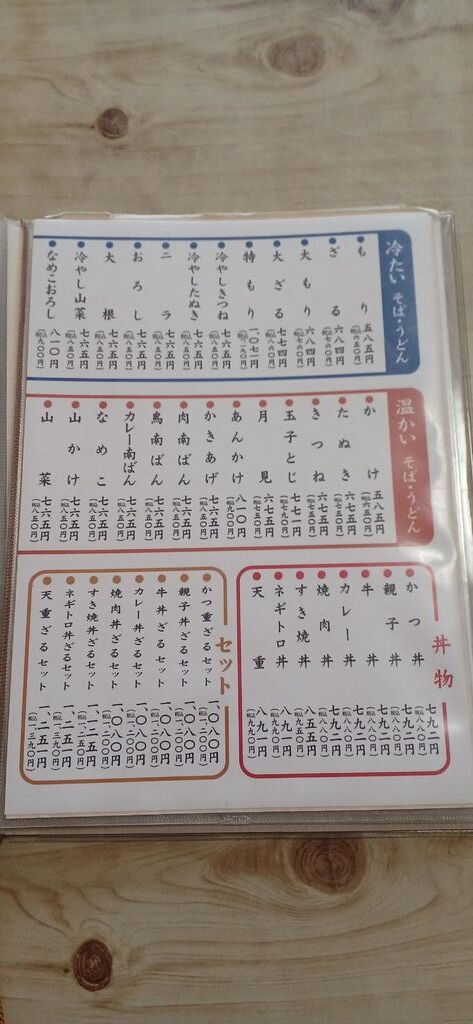 冷たい そば・うどん
もり 五八五円 (税込六五〇円)
ざる 六八四円 (税込七六〇円)
大もり 六八四円 (税込七六〇円)
大ざる 七七四円 (税込八六〇円)
特もり 一、〇七一円 (税込一、一九〇円)
冷やしきつね 七六五円 (税込八五〇円)
冷やしたぬき 七六五円 (税込八五〇円)
ニラ 七六五円 (税込八五〇円)
おろし 七六五円 (税込八五〇円)
大根 七六五円 (税込八五〇円)
冷やし山菜 七六五円 (税込八五〇円)
なめこおろし 八一〇円 (税込九〇〇円)
温かい そば・うどん
かけ 五八五円 (税込六五〇円)
たぬき 六七五円 (税込七五〇円)
きつね 六七五円 (税込七五〇円)
玉子とじ 七一一円 (税込七九〇円)
月見 六七五円 (税込七五〇円)
あんかけ 八一〇円 (税込九〇〇円)
かきあげ 七六五円 (税込八五〇円)
肉南ばん 七六五円 (税込八五〇円)
鳥南ばん 七六五円 (税込八五〇円)
カレー南ばん 七六五円 (税込八五〇円)
なめこ 七六五円 (税込八五〇円)
山かけ 七六五円 (税込八五〇円)
山菜 七六五円 (税込八五〇円)
丼物
かつ丼 七九二円 (税込八八〇円)
親子丼 七九二円 (税込八八〇円)
牛丼 七九二円 (税込八八〇円)
カレー丼 七九二円 (税込八八〇円)
焼肉丼 七九二円 (税込八八〇円)
すき焼丼 八五五円 (税込九五〇円)
ネギトロ丼 八九一円 (税込九九〇円)
天重 八九一円 (税込九九〇円)
セット
かつ重ざるセット 一、〇八〇円 (税込一、二〇〇円)
親子丼ざるセット 一、〇八〇円 (税込一、二〇〇円)
牛丼ざるセット 一、〇八〇円 (税込一、二〇〇円)
カレー丼ざるセット 一、〇八〇円 (税込一、二〇〇円)
焼肉丼ざるセット 一、〇八〇円 (税込一、二〇〇円)
すき焼丼ざるセット 一、一二五円 (税込一、二五〇円)
ネギトロ丼ざるセット 一、二五一円 (税込一、三九〇円)
天重ざるセット 一、二五一円 (税込一、三九〇円)